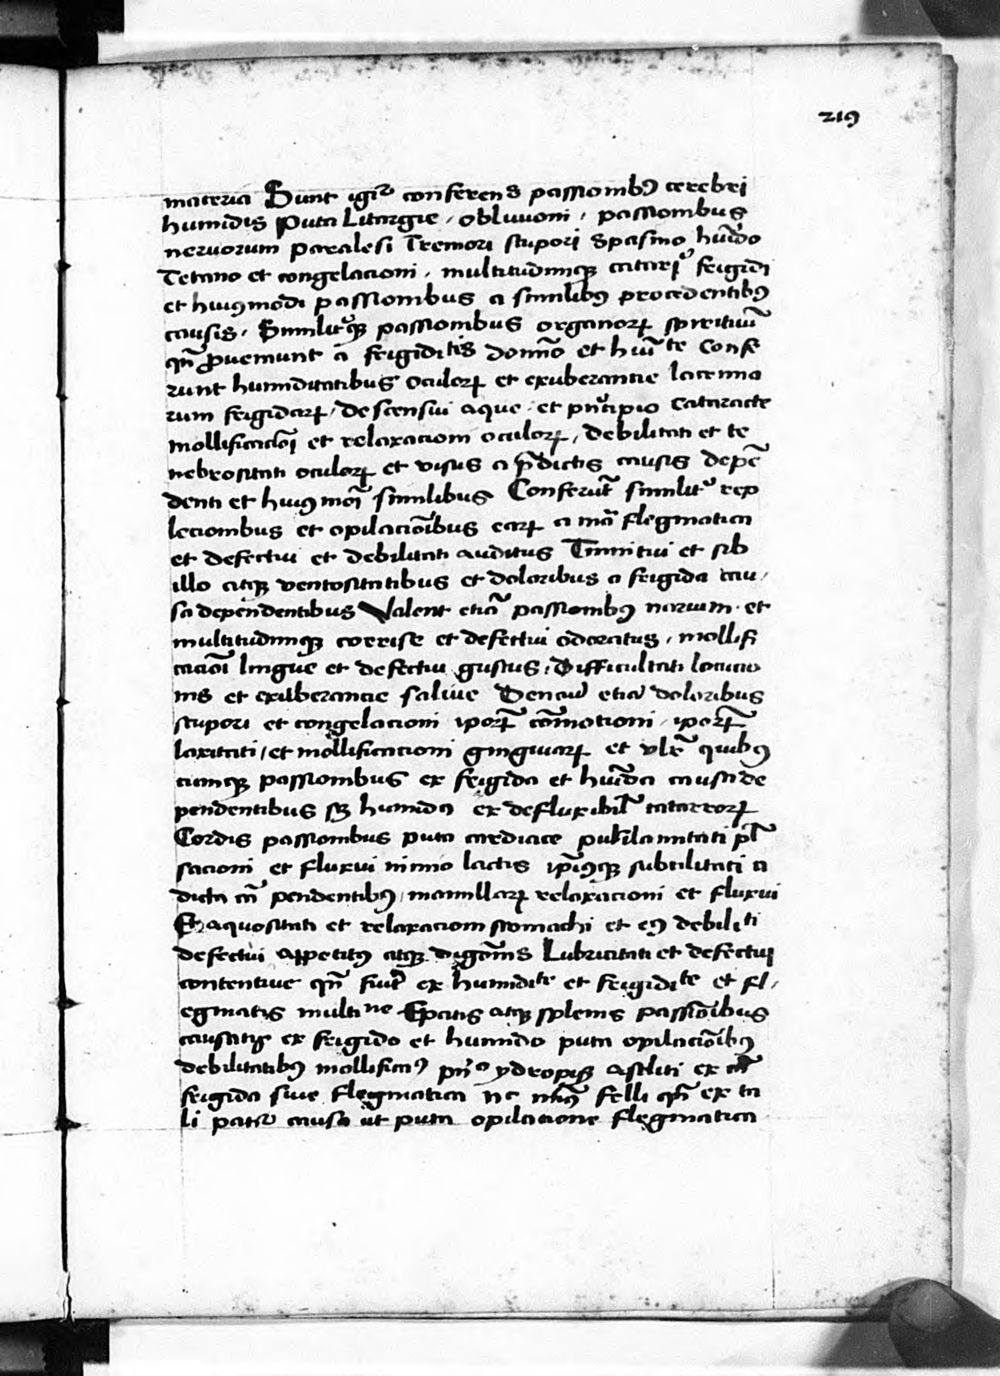 219
materia Sunt igr̃ conferens passionibꝰ cerebri
humidis puta Litargie, oblivioni, passionibus
nervorum paralesi Tremori stupori spasmo hu͠ido
Tetano et congelacioni, multitudiniqꝫ catarjͣ frigidi
et huiꝰmodi passionibus a similibꝰ procedentibꝰ
causis, Similit̾qꝫ passionibus organorꝝ spiritiuͫ
qn̄ ꝓveniunt a frigiditis domio et hu͠te Confe
runt humiditatibus oculorꝝ et exuberancie lacrima
rum frigidarꝝ, descensui aque et pn̾cipio cataracte
mollificacioī et relaxacioni oculorꝝ, debilitati et te
nebrositati oculorꝝ et visus a p̄dictis causis depē
denti et huiꝰ moī similibus Conferūt similitͬ rep
lecionibus et opilacioībus earꝝ a mā flegmatica
et defectui et debilitati auditus Tinnitui et sib
illo atqꝫ ventositatibus et doloribus a frigida cau,
sa dependentibus Valent eciā passionibꝰ narium et
multitudiniqꝫ corrise et defectui odoratus, mollifi
cacioī lingue et defectui gustus, Difficultati locucio
nis et exuberancie salive Denciū eciā doloribus
stupori et congelacioni iporꝝ cōmotioni, ipoꝝ
laxitati, et mollificationi gingivarꝝ et vlr̄ quibꝰ
cumqꝫ passionibus ex frigida et hu͠ida causa de
pendentibus sꝫ humida ex defluxibil̄ catarrorꝝ
Cordis passionibus puta cardiace pusillanimitati pl̄
sacioni et fluxui nimio lactis ip̄iꝰqꝫ subtilitati a
dicta cā pendentibꝰ, mamillarꝝ relaxacioni et fluxui
Et aquositati et relaxacioni stomachi et eꝰ debiliti
defectui appetitꝰ atqꝫ digōnis Lubricitati et defectui
contentive qn̄ fiūt ex humidite et frigidite et fl,
egmatis multine Epatis atqꝫ splenis passioībus
causatis ex frigido et humido puta opilacioībꝰ
debilitatibꝰ mollificaͦ pn̄ͦ ydropisꝫ ascliti ex cā
frigida sive flegmatica nc felli qn̄ ex ta
li patr̃ causa ut puta opilacione flegmatica